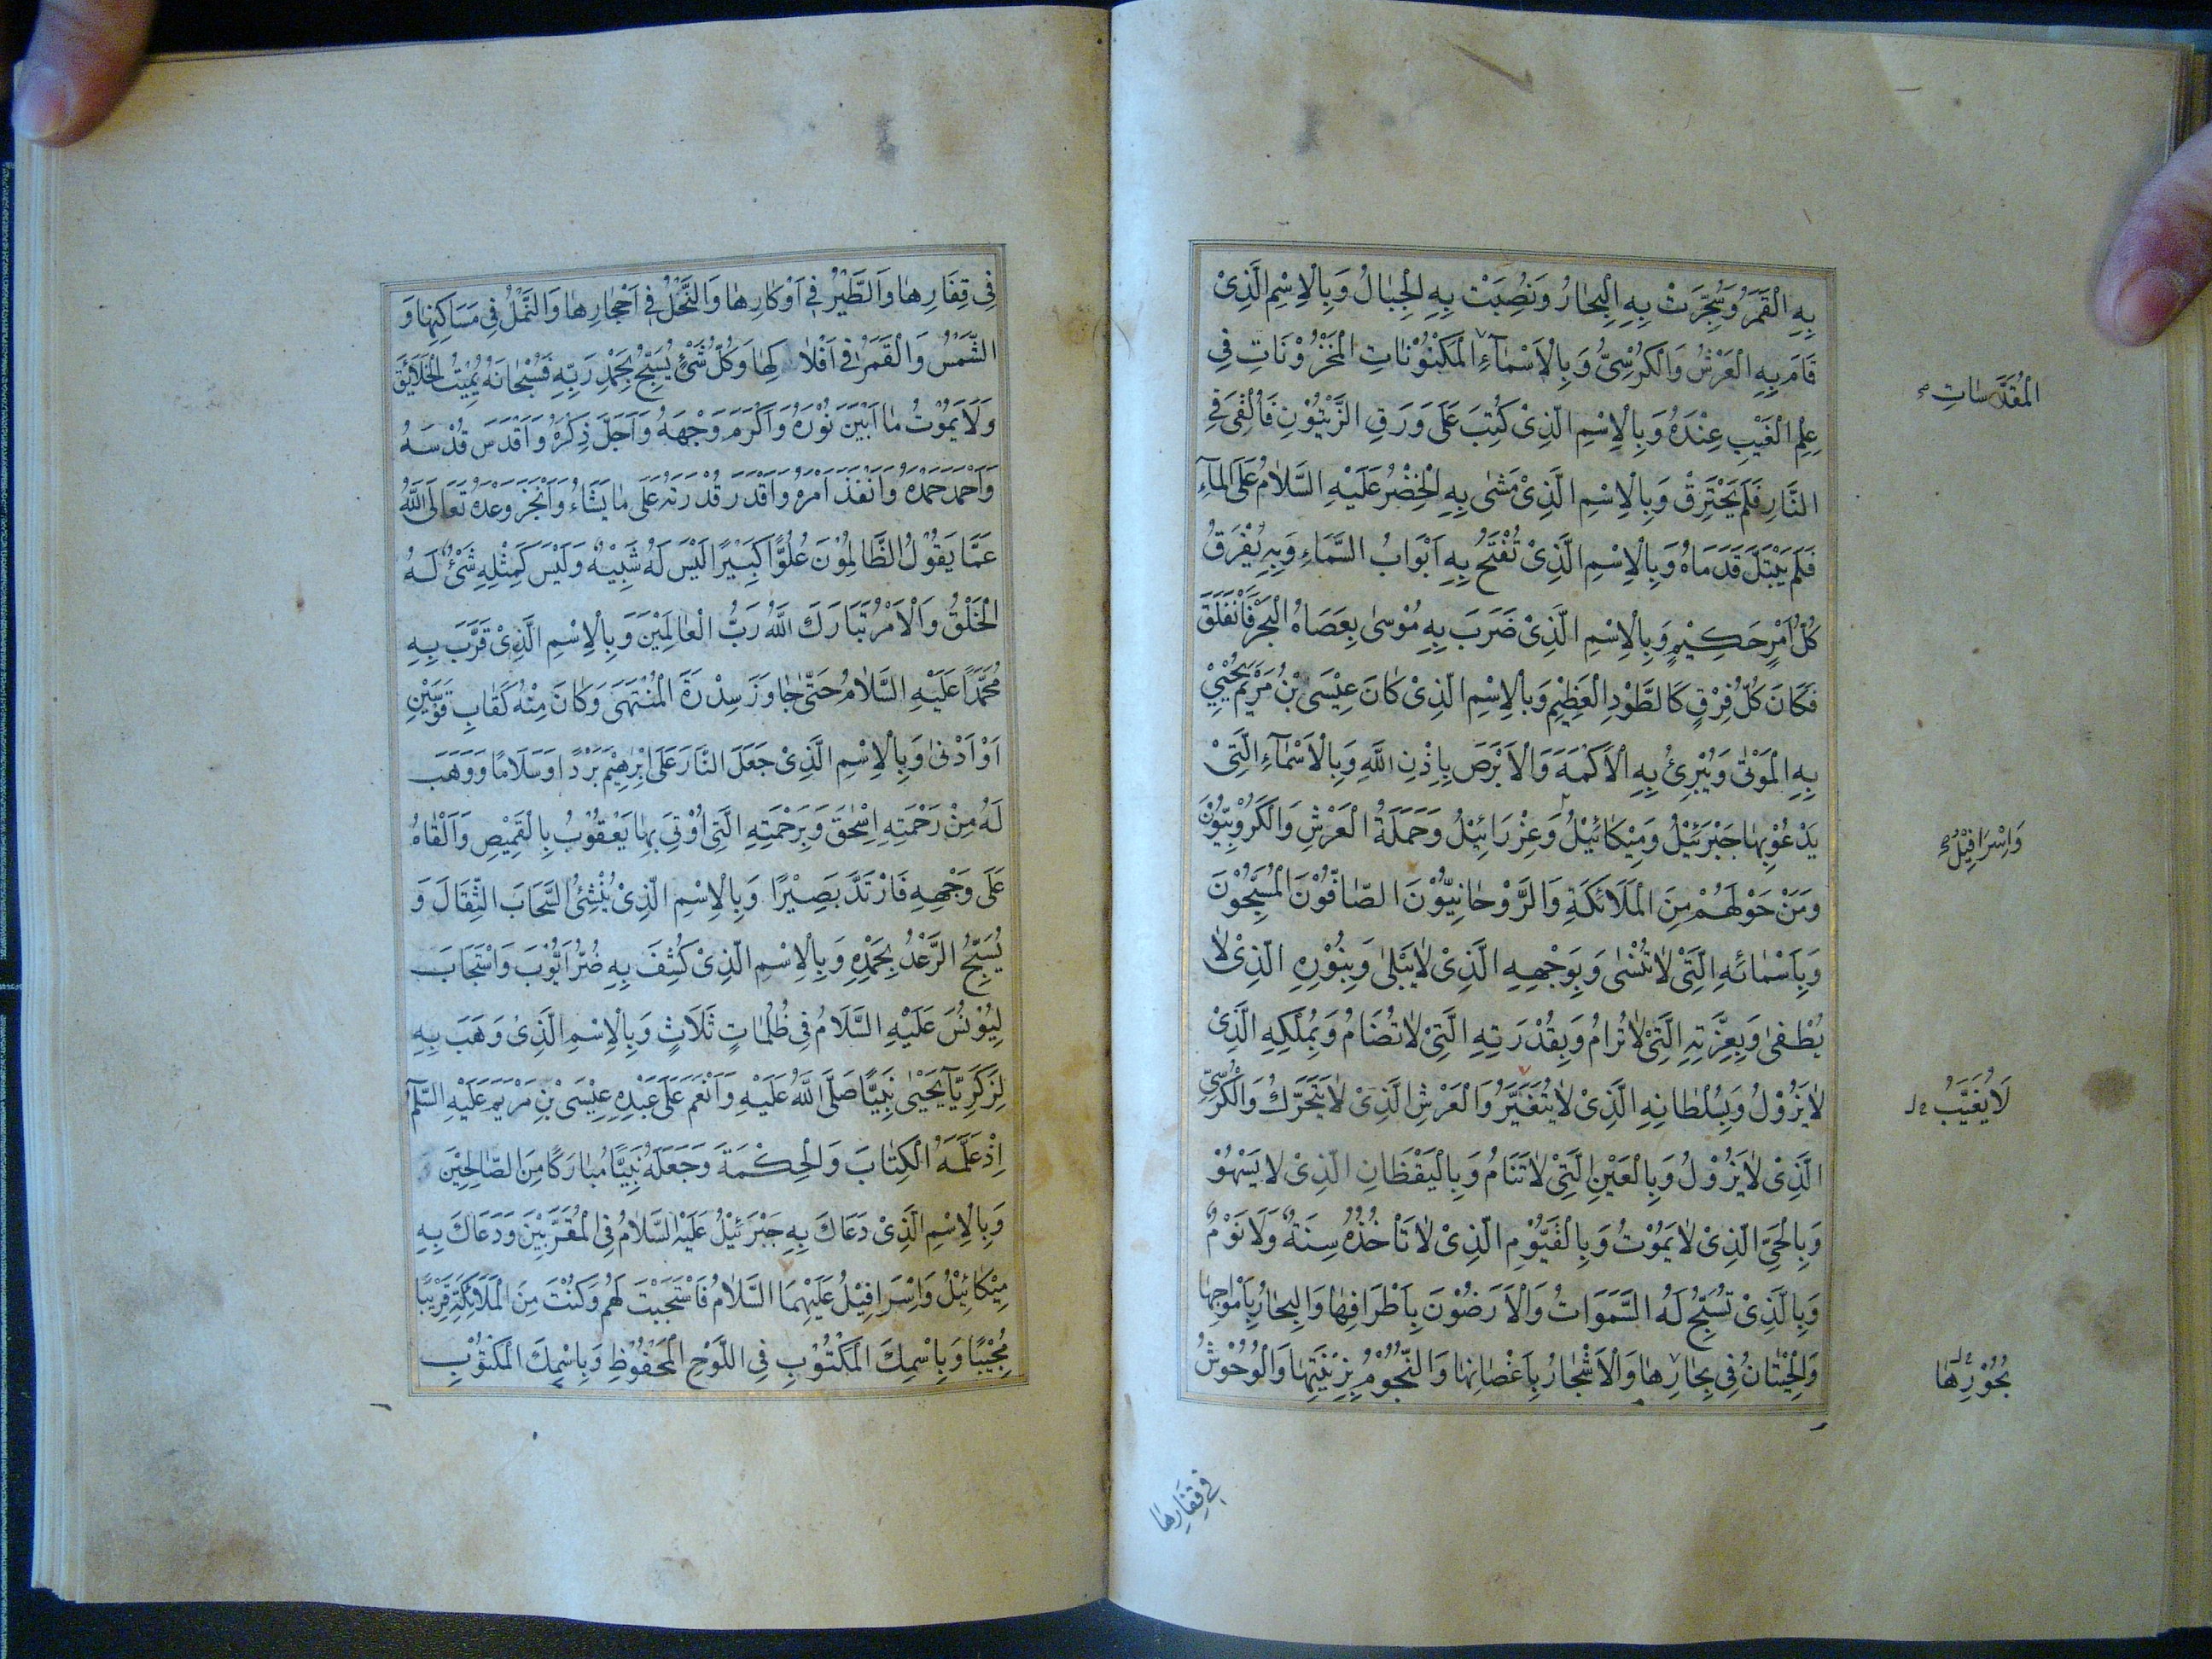 بِهِ الْقَمَرُ وَسُجِّرَتْ بِهِ الْبِحَارُ وَنُصِبَتْ بِهِ الْجِبَالُ وَبِالْاِسْمِ الَّذِىْ
قَامَ بِهِ الْعَرْشُ وَالْكُرْسِىُّ وَبِالْاَسْمَآءِ الْمَكْنُوْنَاتِ الْمَخْزُوْنَاتِ فِى
الْمُقَدَّسَاتِ
عِلْمِ الْغَيْبِ عِنْدَهُ وَبِالْاِسْمِ الَّذِىْ كُتِبَ عَلَى وَرَقِ الزَّيْتُوْنِ فَاُلْقِىَ فِى
النَّارِ فَلَمْ يَحْتَرِقْ وَبِالْاِسْمِ الَّذِىْ مَشٰى بِهِ الْخِضْرُ عَلَيْهِ السَّلَامُ عَلَى الْمَآءِ
فَلَمْ يَبْتَلَّ قَدَمَاهُ وَبِالْاِسْمِ الَّذِىْ تُفْتَحُ بِهِ اَبْوَابُ السَّمَاءِ وَبِهِ يُفْرَقُ
كُلُّ اَمْرٍ حَكِيْمٍ وَبِالْاِسْمِ الَّذِىْ ضَرَبَ بِهِ مُوْسٰى بِعَصَاهُ الْبَحْرَ فَانْفَلَقَ
فَكَانَ كُلُّ فِرْقٍ كَالطَّوْدِ الْعَظِيْمِ وَبِالْاِسْمِ الَّذِىْ كَانَ عِيْسَى بْنُ مَرْيَمَ يُحْيِىْ
بِهِ الْمَوْتٰى وَيُبْرِئُ بِهِ الْاَكْمَهَ وَالْاَبْرَصَ بِاِذْنِ اللّٰهِ وَبِالْاَسْمَآءِ الَّتِىْ
يَدْعُوْ بِهَا جَبْرَئِيْلُ وَمِيْكَائِيْلُ وَعِزْرَائِيْلُ وَحَمَلَةُ الْعَرْشِ وَالْكَرُوْبِيُّوْنَ
وَاِسْرَافِيْلُ
وَمَنْ حَوْلَهُمْ مِنَ الْمَلَائِكَةِ وَالرَّوْحَانِيُّوْنَ الصَّافُّوْنَ الْمُسَبِّحُوْنَ
وَبِاَسْمَائِهِ الَّتِىْ لَا تُنْسٰى وَبِوَجْهِهِ الَّذِىْ لَا يَبْلٰى وَبِنُوْرِهِ الَّذِىْ لَا
يُطْفٰى وَبِعِزَّتِهِ الَّتِىْ لَا تُرَامُ وَبِقُدْرَتِهِ الَّتِىْ لَا تُضَامُ وَبِمُلْكِهِ الَّذِىْ
لَا يَزُوْلُ وَبِسُلْطَانِهِ الَّذِىْ لَا يَتَغَيَّرُ وَالْعَرْشِ الَّذِىْ لَا يَتَحَرَّكُ وَالْكُرْسِىِّ
الَّذِىْ لَا يَزُوْلُ وَبِالْعَيْنِ الَّتِىْ لَا تَنَامُ وَبِالْيَقْظَانِ الَّذِىْ لَا يَسْهُوْ
وَبِالْحَىِّ الَّذِىْ لَا يَمُوْتُ وَبِالْقَيُّوْمِ الَّذِىْ لَا تَاْخُذُهُ سِنَةٌ وَلَا نَوْمٌ
وَبِالَّذِىْ تُسَبِّحُ لَهُ السَّمٰوَاتُ وَالْاَرَضُوْنَ بِاَطْرَافِهَا وَالْبِحَارُ بِاَمْوَاجِهَا
وَالْحِيْتَانُ فِى بِحَارِهَا وَالْاَشْجَارُ بِاَغْصَانِهَا وَالنُّجُوْمُ بِزِيْنَتِهَا وَالْوُحُوْشُ
بُحُوْرِهَا
فِى قِفَارِهَا
فِى قِفَارِهَا وَالطَّيْرُ فِى اَوْكَارِهَا وَالنَّحْلُ فِى اَحْجَارِهَا وَالنَّمْلُ فِى مَسَاكِنِهَا وَ
الشَّمْسُ وَالْقَمَرُ فِى اَفْلَاكِهَا وَكُلُّ شَىْءٍ يُسَبِّحُ بِحَمْدِ رَبِّهِ فَسُبْحَانَهُ يُمِيْتُ الْخَلَائِقَ
وَلَا يَمُوْتُ مَا اَبْيَنَ نُوْرَهُ وَاَكْرَمَ وَجْهَهُ وَاَجَلَّ ذِكْرَهُ وَاَقْدَسَ قُدْسَهُ
وَاَحْمَدَ حَمْدَهُ وَاَنْفَذَ اَمْرَهُ وَاَقْدَرَ قُدْرَتَهُ عَلَى مَا يَشَاءُ وَاَنْجَزَ وَعْدَهُ تَعَالَى اللّٰهُ
عَمَّا يَقُوْلُ الظَّالِمُوْنَ عُلُوًّا كَبِيْرًا لَيْسَ لَهُ شَبِيْهٌ وَلَيْسَ كَمِثْلِهِ شَىْءٌ لَهُ
الْخَلْقُ وَالْاَمْرُ تَبَارَكَ اللّٰهُ رَبُّ الْعَالَمِيْنَ وَبِالْاِسْمِ الَّذِىْ قَرَّبَ بِهِ
مُحَمَّدًا عَلَيْهِ السَّلَامُ حَتّٰى جَاوَزَ سِدْرَةَ الْمُنْتَهَى وَكَانَ مِنْهُ كَقَابِ قَوْسَيْنِ
اَوْ اَدْنٰى وَبِالْاِسْمِ الَّذِىْ جَعَلَ النَّارَ عَلَى اِبْرٰهِيْمَ بَرْدًا وَسَلَامًا وَوَهَبَ
لَهُ مِنْ رَحْمَتِهِ اِسْحٰقَ وَبِرَحْمَتِهِ الَّتِى اُوْتِىَ بِهَا يَعْقُوْبُ بِالْقَمِيْصِ وَاَلْقَاهُ
عَلَى وَجْهِهِ فَارْتَدَّ بَصِيْرًا وَبِالْاِسْمِ الَّذِىْ يُنْشِئُ السَّحَابَ الثِّقَالَ وَ
يُسَبِّحُ الرَّعْدُ بِحَمْدِهِ وَبِالْاِسْمِ الَّذِىْ كُشِفَ بِهِ ضُرُّ اَيُّوْبَ وَاسْتَجَابَ
لِيُوْنُسَ عَلَيْهِ السَّلَامُ فِى ظُلُمَاتٍ ثَلَاثٍ وَبِالْاِسْمِ الَّذِىْ وَهَبَ بِهِ
لِزَكَرِيَّآ يَحْيٰى نَبِيًّا صَلَّى اللّٰهُ عَلَيْهِ وَاَنْعَمَ عَلَى عَبْدِهِ عِيْسَى بْنِ مَرْيَمَ عَلَيْهِ السَّلٰمُ
اِذْ عَلَّمَهُ الْكِتَابَ وَالْحِكْمَةَ وَجَعَلَهُ نَبِيًّا مُبَارَكًا مِنَ الصَّالِحِيْنَ
وَبِالْاِسْمِ الَّذِىْ دَعَاكَ بِهِ جَبْرَئِيْلُ عَلَيْهِ السَّلَامُ فِى الْمُقَرَّبِيْنَ وَدَعَاكَ بِهِ
مِيْكَائِيْلُ وَاِسْرَافِيْلُ عَلَيْهِمَا السَّلَامُ فَاسْتَجَبْتَ لَهُمْ وَكُنْتَ مِنَ الْمَلَائِكَةِ قَرِيْبًا
مُجِيْبًا وَبِاسْمِكَ الْمَكْتُوْبِ فِى اللَّوْحِ الْمَحْفُوْظِ وَبِاسْمِكَ الْمَكْتُوْبِ